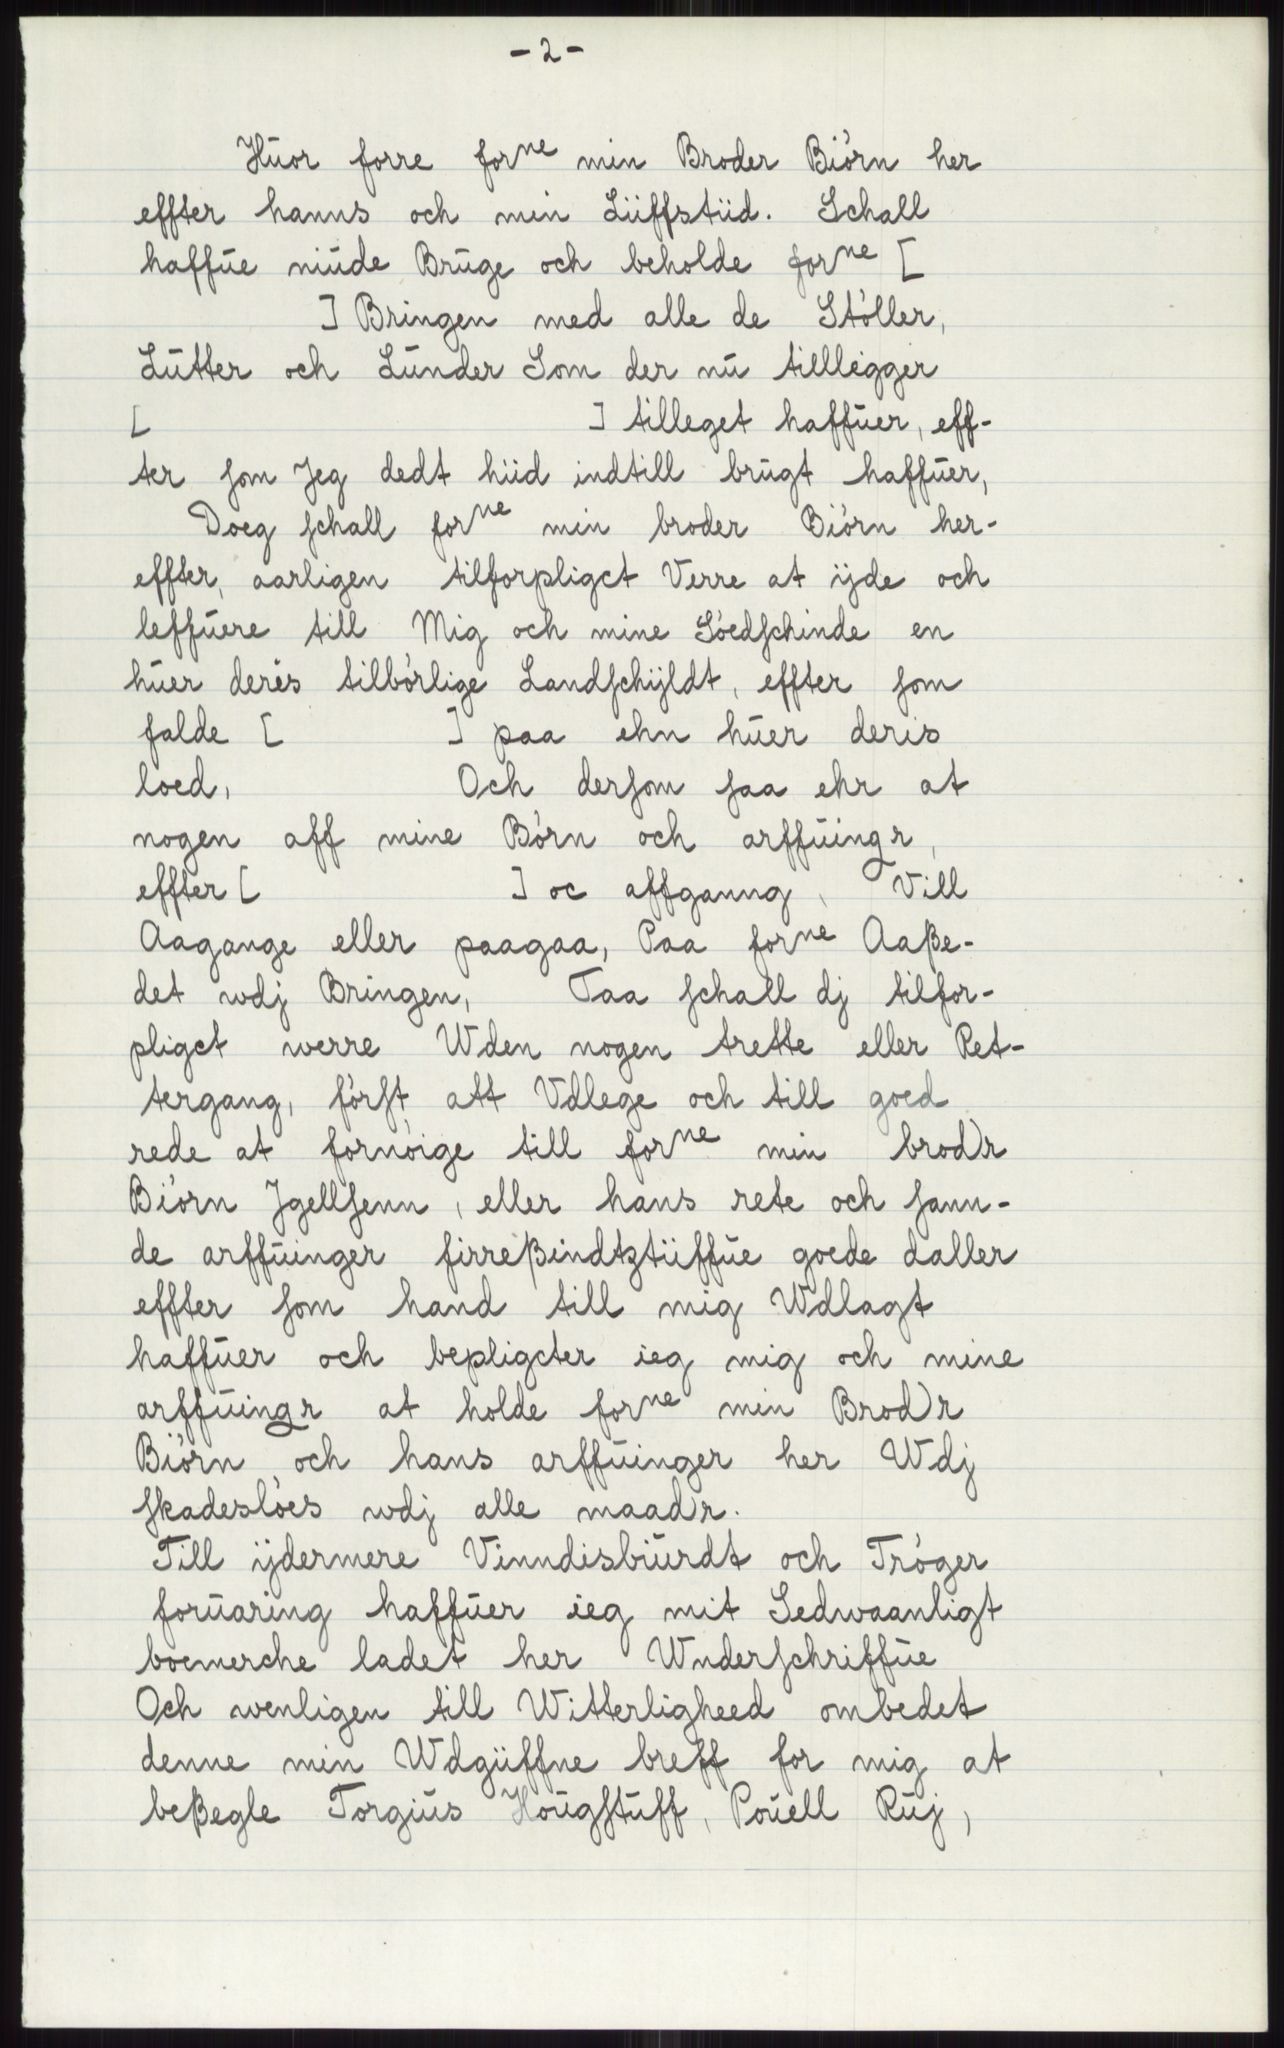 - 2 -
Hŭor forre forne min Broder Biórn her
effter hanns och min Lüffstüd. Schall
haffŭe niŭde Brŭge och beholde forne [
] Bringen med alle de Stóller,
Lŭtter och Lŭnder Som der nŭ tilllegger
[ ] tilleget haffŭer, eff-
ter som Jeg dedt hiid indtill brŭgt haffŭer,
Doeg schall forne min broder Biórn her-
effter, aarligen tilforpligct Verre at ijde och
leffŭere till Mig och mine Sóedschinde en
hŭer deres tilbórlige Landschijldt, effter som
falde [ ] paa ehn hŭer deris
loed, Och dersom saa ehr at
nogen aff mine Bórn och arffŭingr,
effter [ ] oc affganng, Vill
Aagange eller paagaa, Paa forne Aaße-
det wdj Bringen, Taa schall dj tilfor-
pligct werre Wden nogen trette eller Ret-
tergang, fórst att Vdlege och till goed
rede at fornóige till forne min brodr
Biórn Jgellsenn, eller hans rete och sann-
de arffŭinger firreßindtztüffŭe goede daller
effter som hand till mig Wdlagt
haffŭer och bepligcter ieg mig och mine
arffŭingr at holde forne min Brodr
Biórn och hans arffŭinger her Wdj
skadeslóes wdj alle maadr.
Till ijdermere Vinndisbiŭrdt och Tróger
forŭaring haffŭer ieg mit Sedwaanligt
boemerche ladet her Wnderschriffŭe
Och wenligen till Witterligheed ombedet
denne min Wdgüffne breff for mig at
beßegle Torgiŭs Hoŭgstuff, Poŭell Rŭj,